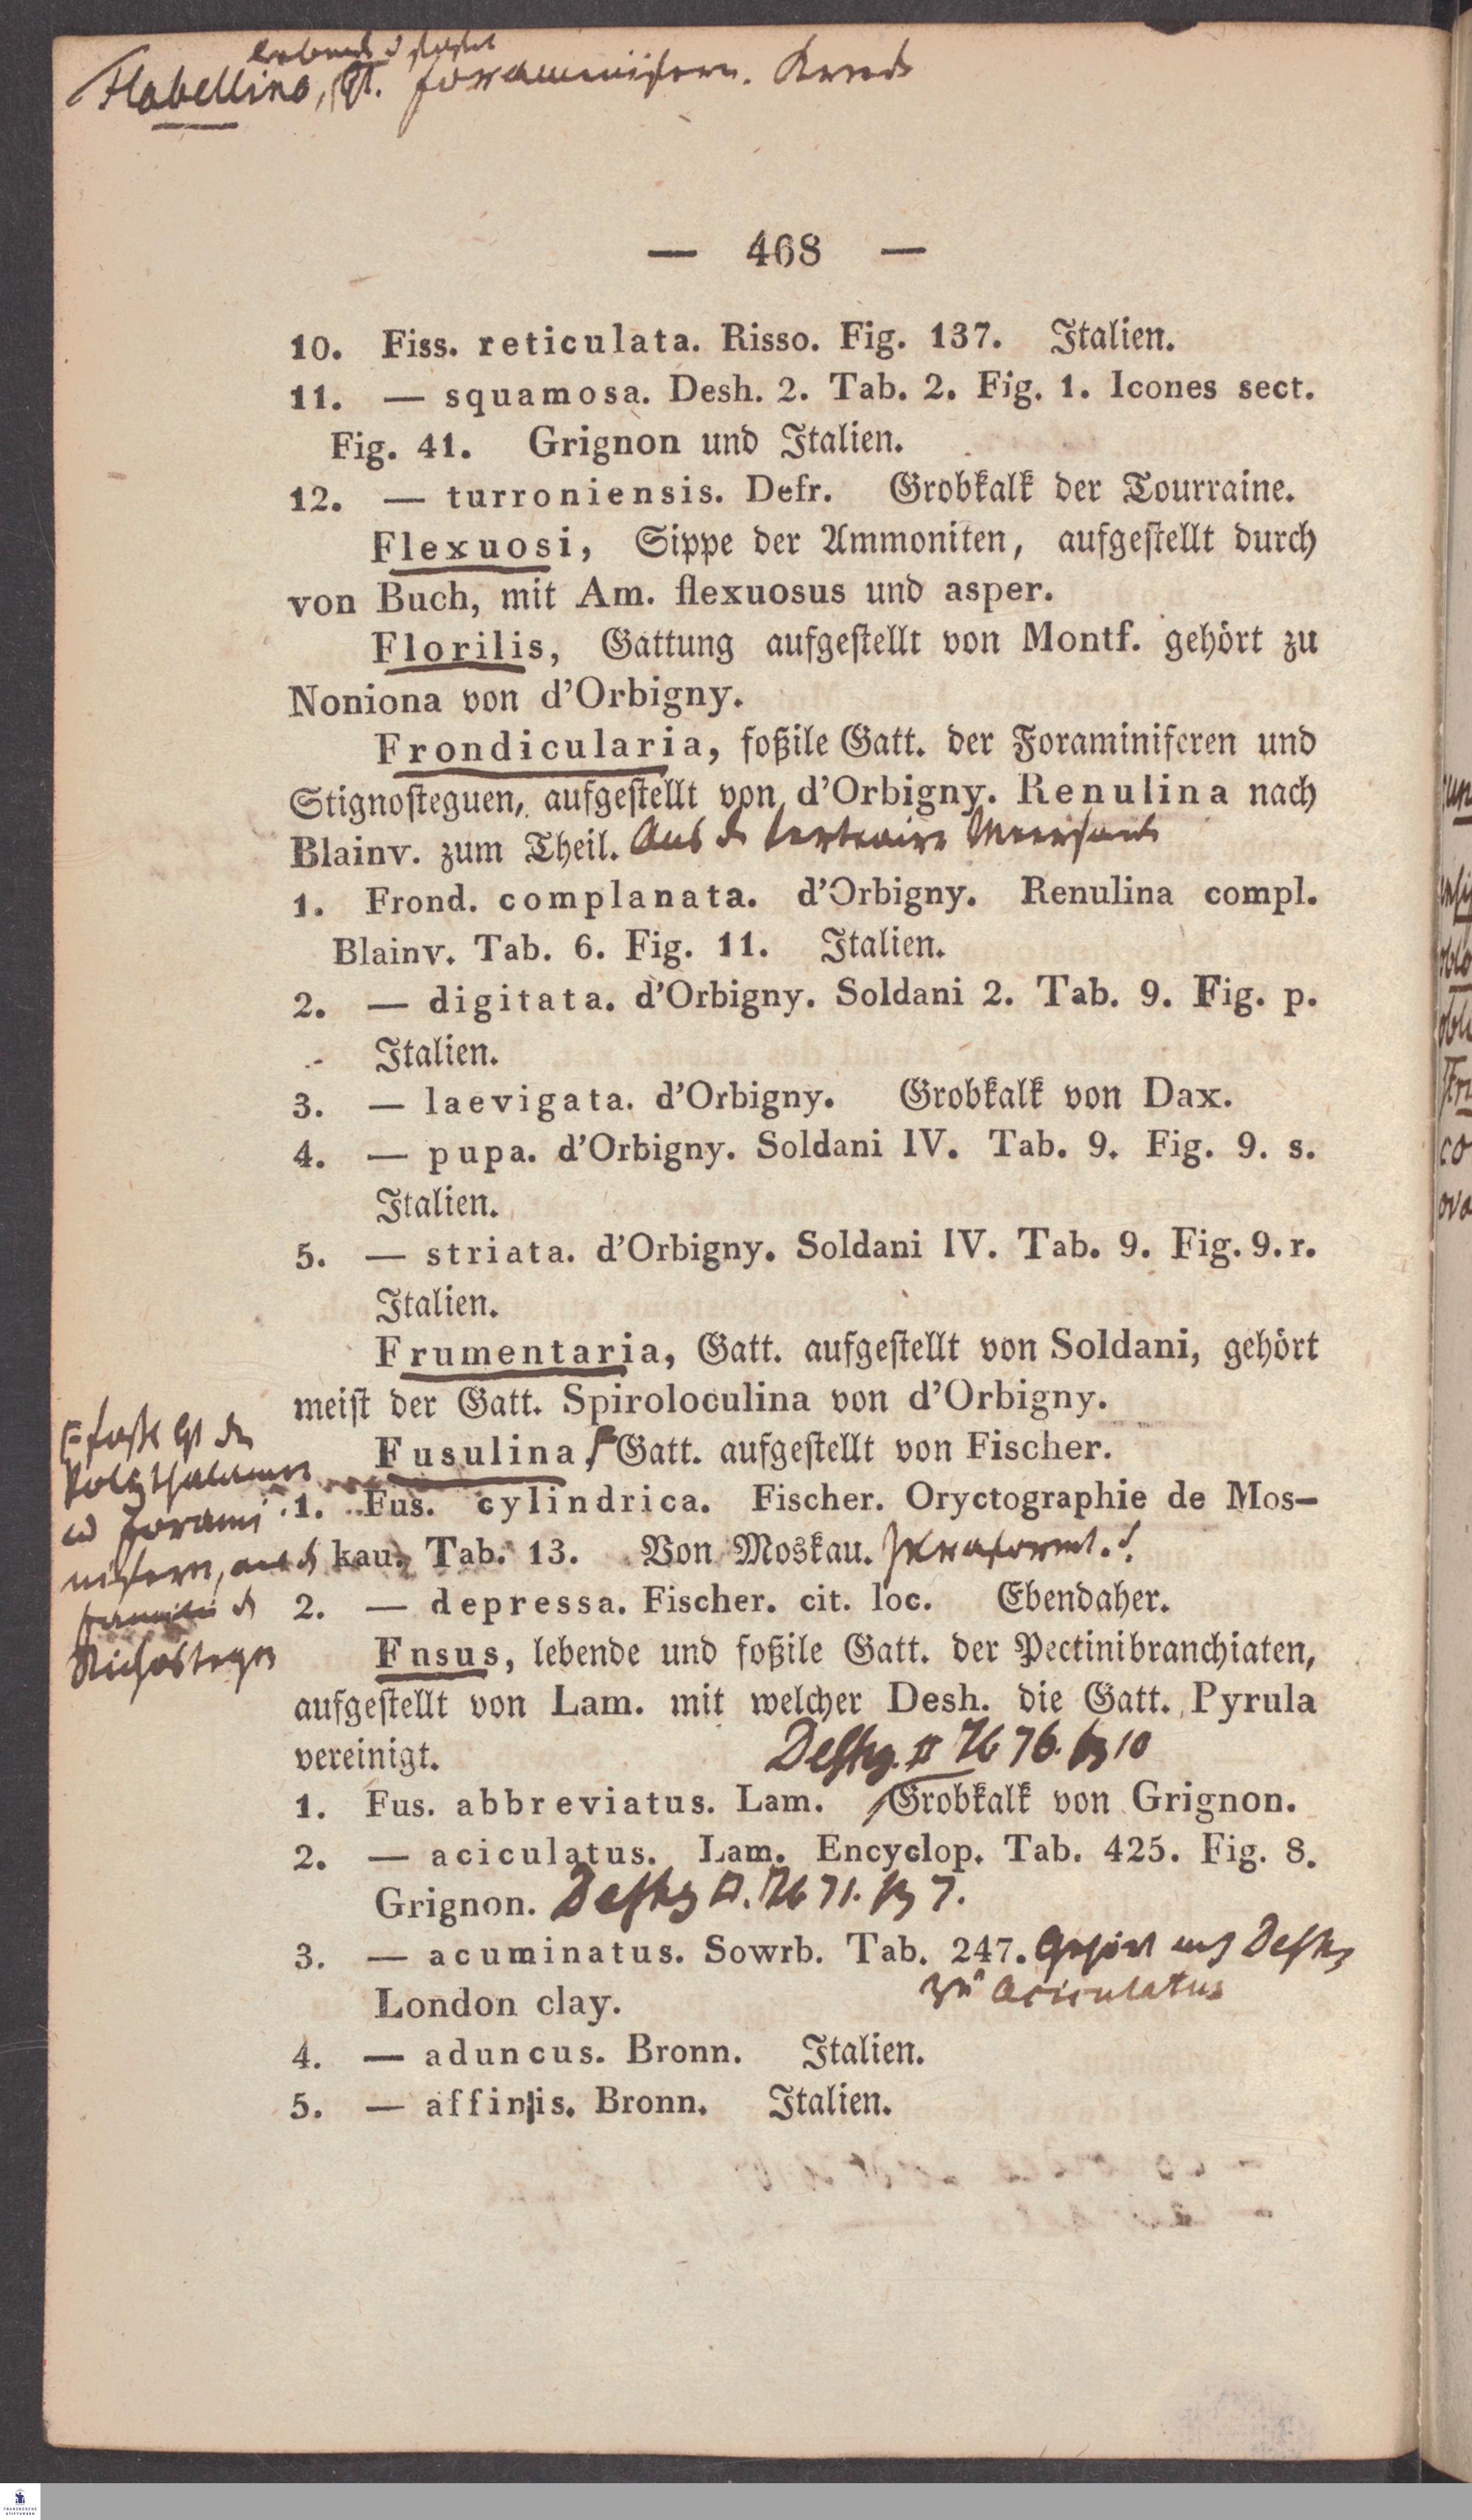 Flabellina, Gt. foraminifern. Kreide
— 468 —
10. Fiss. reticulata. Risso. Fig. 137. Italien.
11. — squamosa. Desh. 2. Tab. 2. Fig. 1. Icones sect.
Fig. 41. Grignon und Italien.
12. — turroniensis. Defr. Grobkalk der Tourraine.
Flexuosi, Sippe der Ammoniten, aufgestellt durch
von Buch, mit Am. flexuosus und asper.
Florilis, Gattung aufgestellt von Montf. gehört zu
Noniona von d'Orbigny.
Frondicularia, foßile Gatt. der Foraminiferen und
Stignosteguen, aufgestellt von d'Orbigny. Renulina nach
Blainv. zum Theil. Aus d tertiaire Meersand
1. Frond. complanata. d'Orbigny. Renulina compl.
Blainv. Tab. 6. Fig. 11. Italien.
2. — digitata. d'Orbigny. Soldani 2. Tab. 9. Fig. p.
Italien.
3. — laevigata. d'Orbigny. Grobkalk von Dax.
4. — pupa. d'Orbigny. Soldani IV. Tab. 9. Fig. 9. s.
Italien.
5. — striata. d'Orbigny. Soldani IV. Tab. 9. Fig. 9. r.
Italien.
Frumentaria, Gatt. aufgestellt von Soldani, gehört
meist der Gatt. Spiroloculina von d'Orbigny.
Fusulina, Gatt. aufgestellt von Fischer.
1. Fus. cylindrica. Fischer. Oryctographie de Mos-
kau. Tab. 13. Von Moskau.
2. — depressa. Fischer. cit. loc. Ebendaher.
Fnsus, lebende und foßile Gatt. der Pectinibranchiaten,
aufgestellt von Lam. mit welcher Desh. die Gatt. Pyrula
vereinigt. Deshy. II Tb 76. fig 10
1. Fus. abbreviatus. Lam. Grobkalk von Grignon.
2. — aciculatus. Lam. Encyclop. Tab. 425. Fig. 8.
Grignon. Deshy II. Tb 71. fig 7.
3. — acuminatus. Sowrb. Tab. 247. Gehört nach Deshy
London clay. zu aciculatus
4. — aduncus. Bronn. Italien.
5. — affinis. Bronn. Italien.